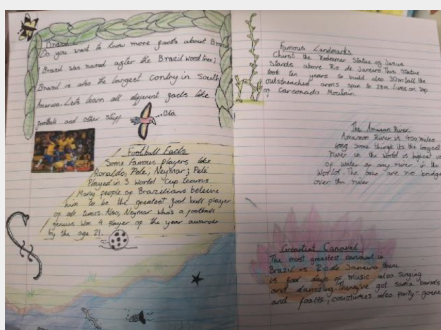 Brazil
Do you want to know more facts about Brazil
Brazil was named after the Brazil wood tree;
Brazil is also the largest in South
America. Lets down all different facts like
football and other things
Football Facts
Some Famous players like
Ronaldo, Pele, Neymar; Pele
Played in 3 world cup
Many people or Brazilians believe
him to be the greatest football player
of all time. Also, Neymar whats a football
genius won 4 player of the year awards
by the age 21.
Famous Landmarks
Christ the Redeemer Statue of Jesus
Stands above Rio de Janeiro. This Statue
took ten years to build also 30m tall the
outstretched arms span to 28m. Lives on top
of Corcovado Mountain.
The Amazon River
Amazon River is 4,000 miles
long some things its the longest
River in the World is highest
of water in any river in the
World. The are no bridge
over the river
Greatest Carnival
The most greatest carnival in
Brazil is Rio de Janeiro there
is four days of music also singing
and dancing. They've got samba
and costumes also party